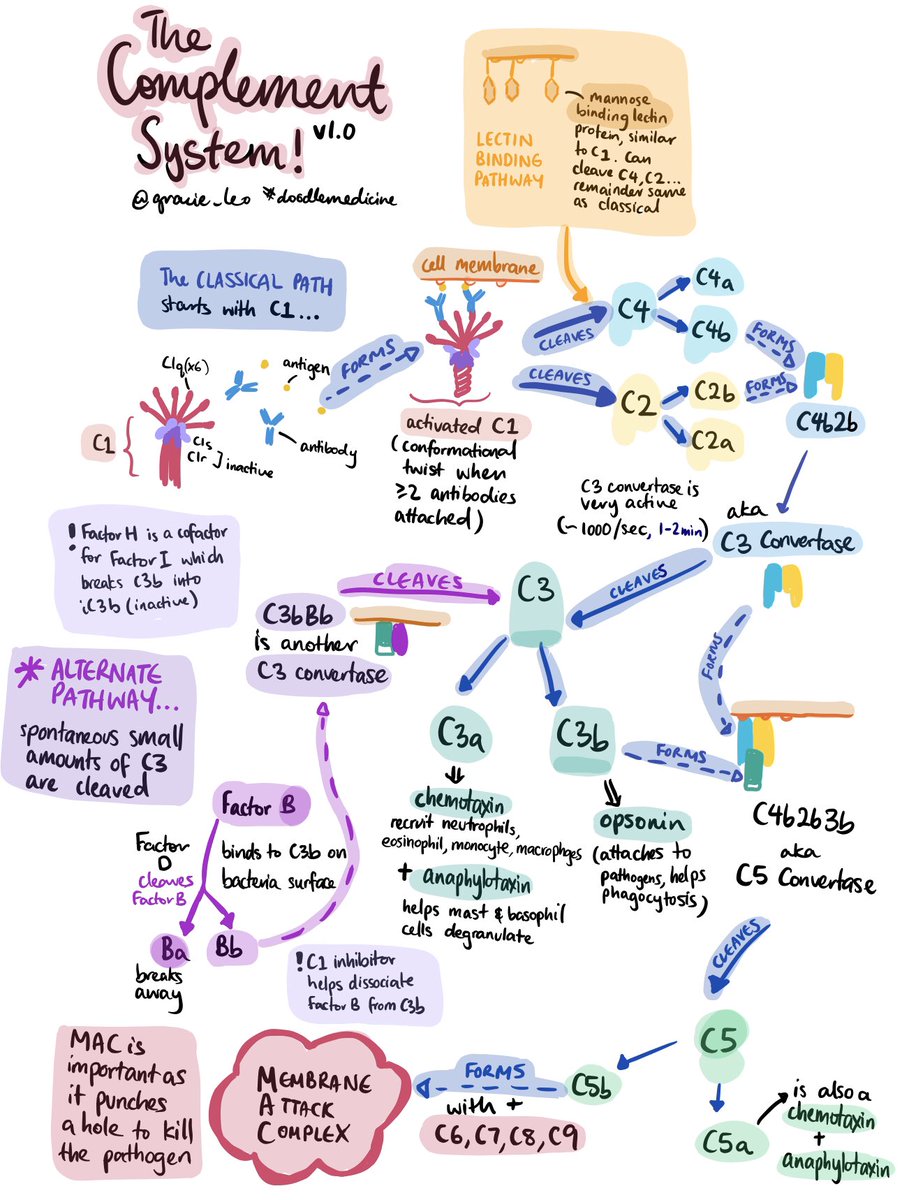 The
Complement
System! v1.0
@gracie_leo #doodlemedicine
LECTIN
BINDING
PATHWAY
mannose
binding lectin
protein, similar
to C1. Can
cleave C4, C2...
remainder same
as classical
The CLASSICAL PATH
starts with C1...
cell membrane
C1q(x6)
antigen
FORMS
C1
C1s
C1r
inactive
antibody
activated C1
(conformational
twist when
≥2 antibodies
attached)
CLEAVES
C4
C4a
C4b
FORMS
CLEAVES
C2
C2b
C2a
FORMS
C4b2b
C3 convertase is
very active
(~1000/sec, 1-2min)
aka
C3 Convertase
! Factor H is a cofactor
for Factor I which
breaks C3b into
iC3b (inactive)
CLEAVES
C3
CLEAVES
C3bBb
is another
C3 convertase
FORMS
* ALTERNATE
PATHWAY...
spontaneous small
amounts of C3
are cleaved
C3a
C3b
FORMS
chemotaxin
recruit neutrophils,
eosinophil, monocyte, macrophges
+ anaphylotaxin
helps mast & basophil
cells degranulate
opsonin
(attaches to
pathogens, helps
phagocytosis)
C4b2b3b
aka
C5 Convertase
Factor B
Factor
D
cleaves
Factor B
binds to C3b on
bacteria surface
Ba
Bb
breaks
away
! C1 inhibitor
helps dissociate
Factor B from C3b
CLEAVES
C5
C5b
C5a
is also a
chemotaxin
+
anaphylotaxin
FORMS
with +
C6, C7, C8, C9
MEMBRANE
ATTACK
COMPLEX
MAC is
important as
it punches
a hole to kill
the pathogen